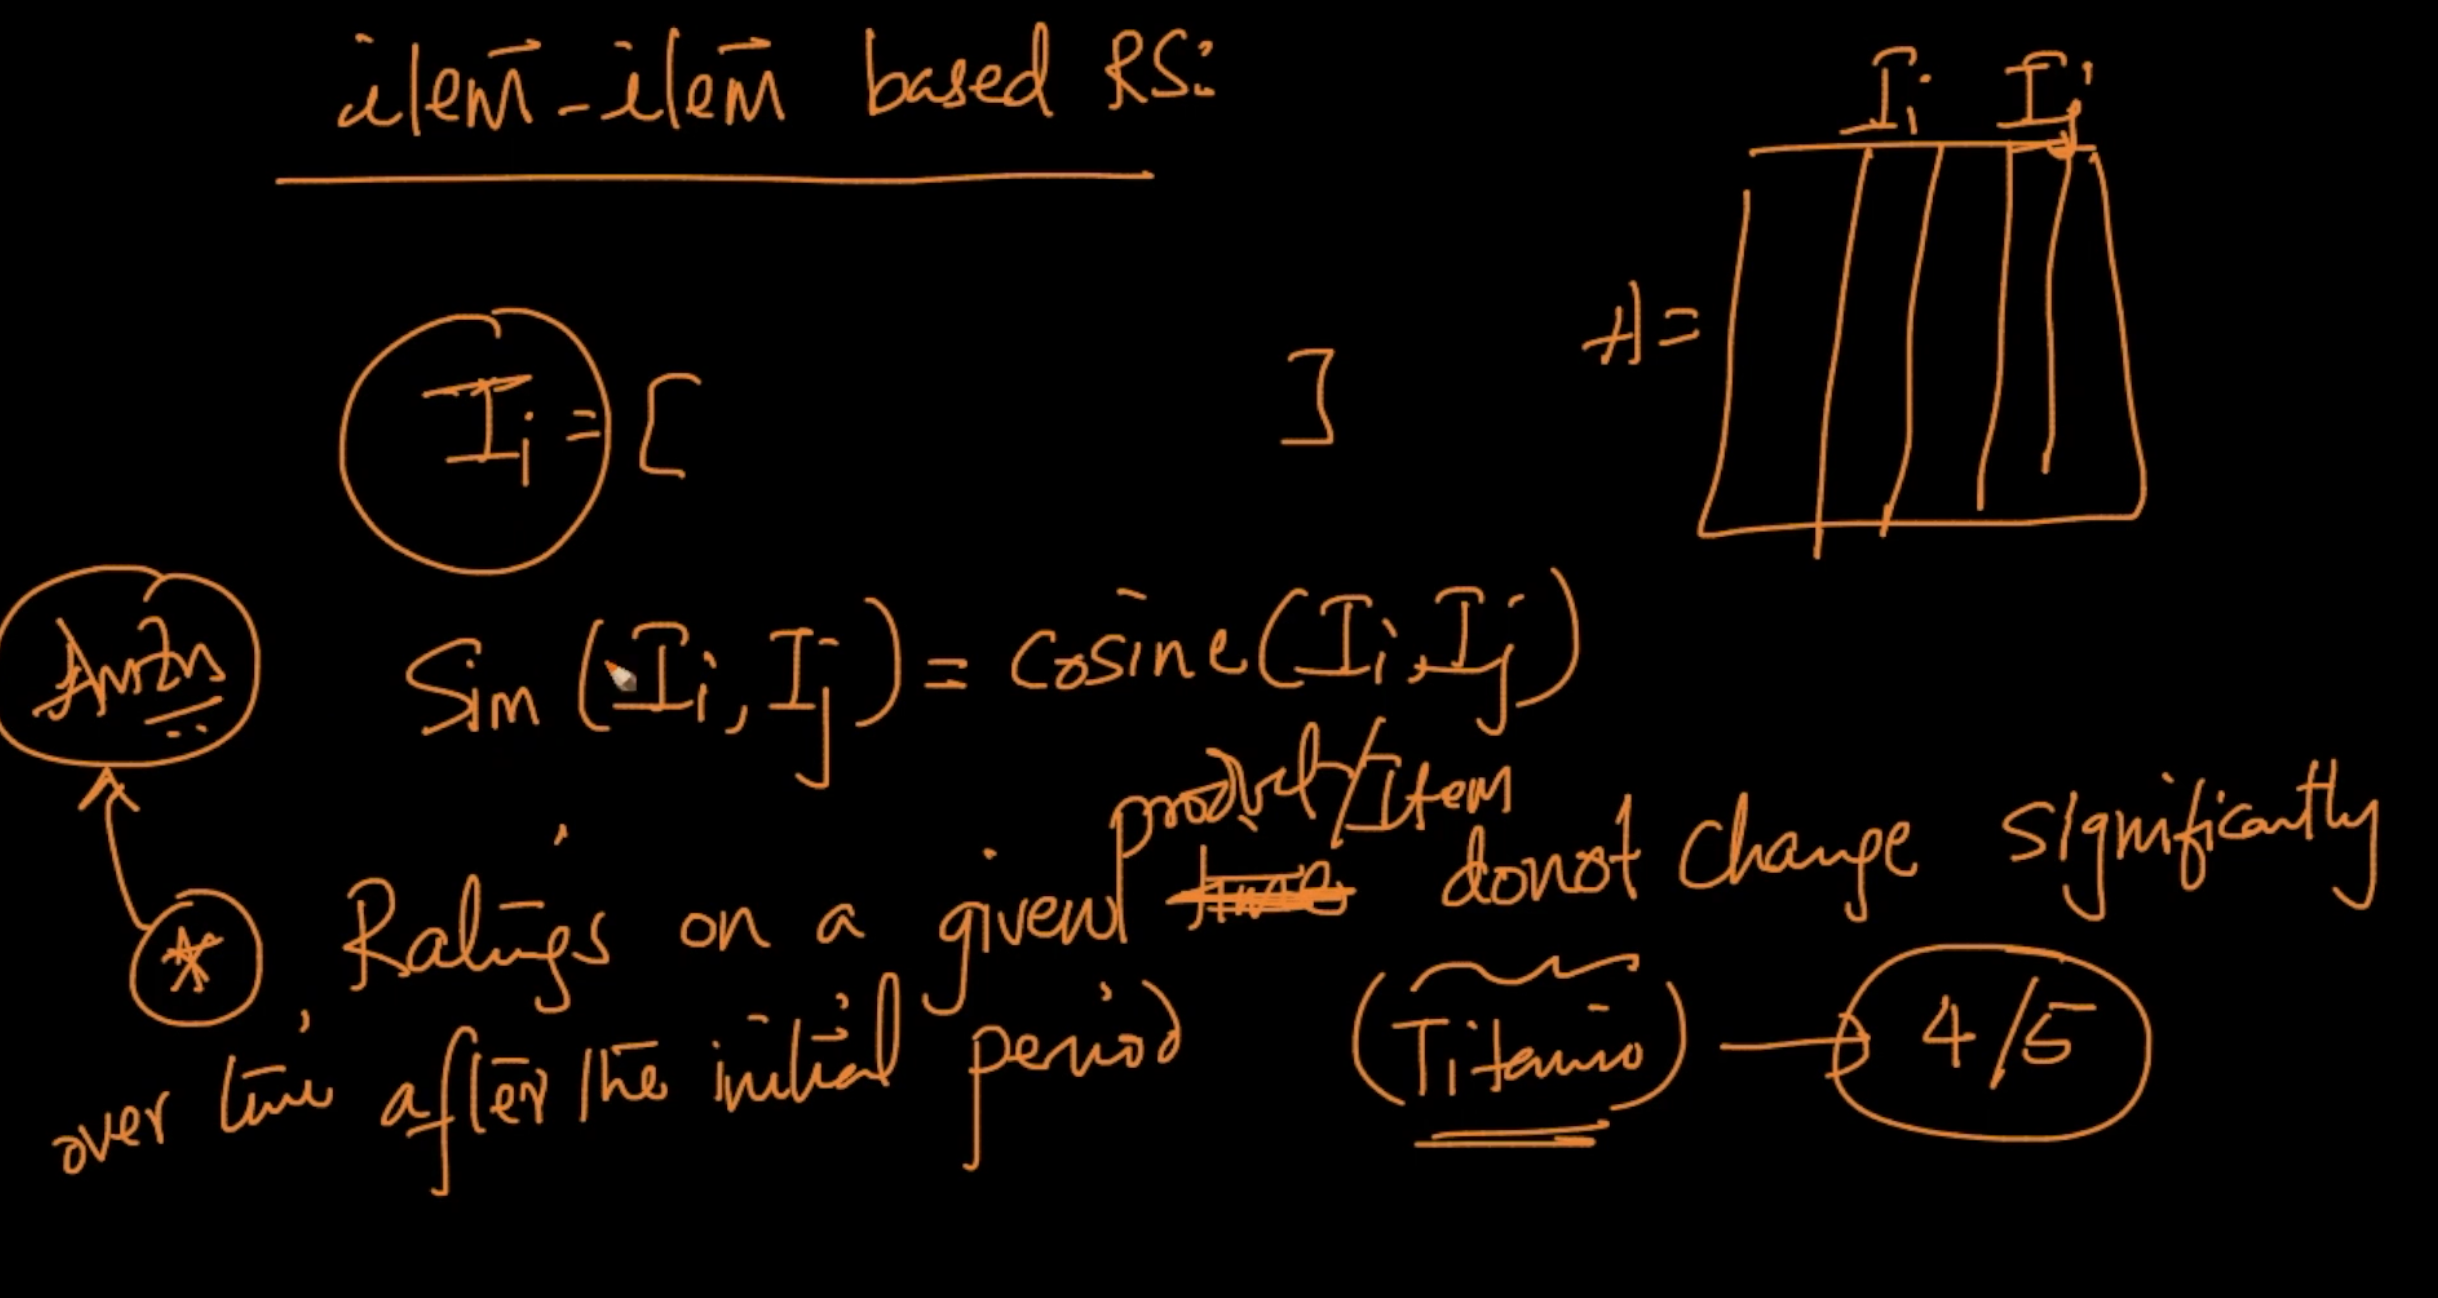 item-item based RS:
Ii Ij
A =
Ii = [ ]
Amzn
Sim (Ii, Ij) = Cosine (Ii, Ij)
product/Item
* Ratings on a given time donot change significantly
over time after the initial period (Titanic) → 4/5